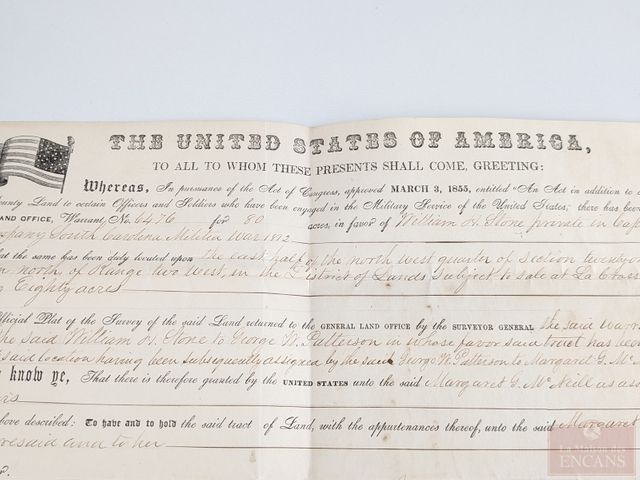 THE UNITED STATES OF AMERICA,
TO ALL TO WHOM THESE PRESENTS SHALL COME, GREETING:
Whereas, In pursuance of the Act of Congress, approved MARCH 3, 1855, entitled "An Act in addition to c
ounty Land to certain Officers and Soldiers who have been engaged in the Military Service of the United States," there has be
AND OFFICE, Warrant No. 6476 for 80 acres, in favor of William H. Stone private in Cap
mpany South Carolina Militia War 1812
at the same has been duly located upon the east half of the north west quarter of Section twenty
n north, of Range two West, in the District of Lands subject to sale at La Cross
g Eighty acres
fficial Plat of the Survey of the said Land returned to the GENERAL LAND OFFICE by the SURVEYOR GENERAL the said Warr
the said William H. Stone to George W. Patterson in whose favor said tract has been
said location having been subsequently assigned by the said George W. Patterson to Margaret G. Mc
know ye, That there is therefore granted by the UNITED STATES unto the said Margaret G. McNeill as ass
rs
above described: To have and to hold the said tract of Land, with the appurtenances thereof, unto the said Margaret
resaid and to her
La Maison des
ENCANS